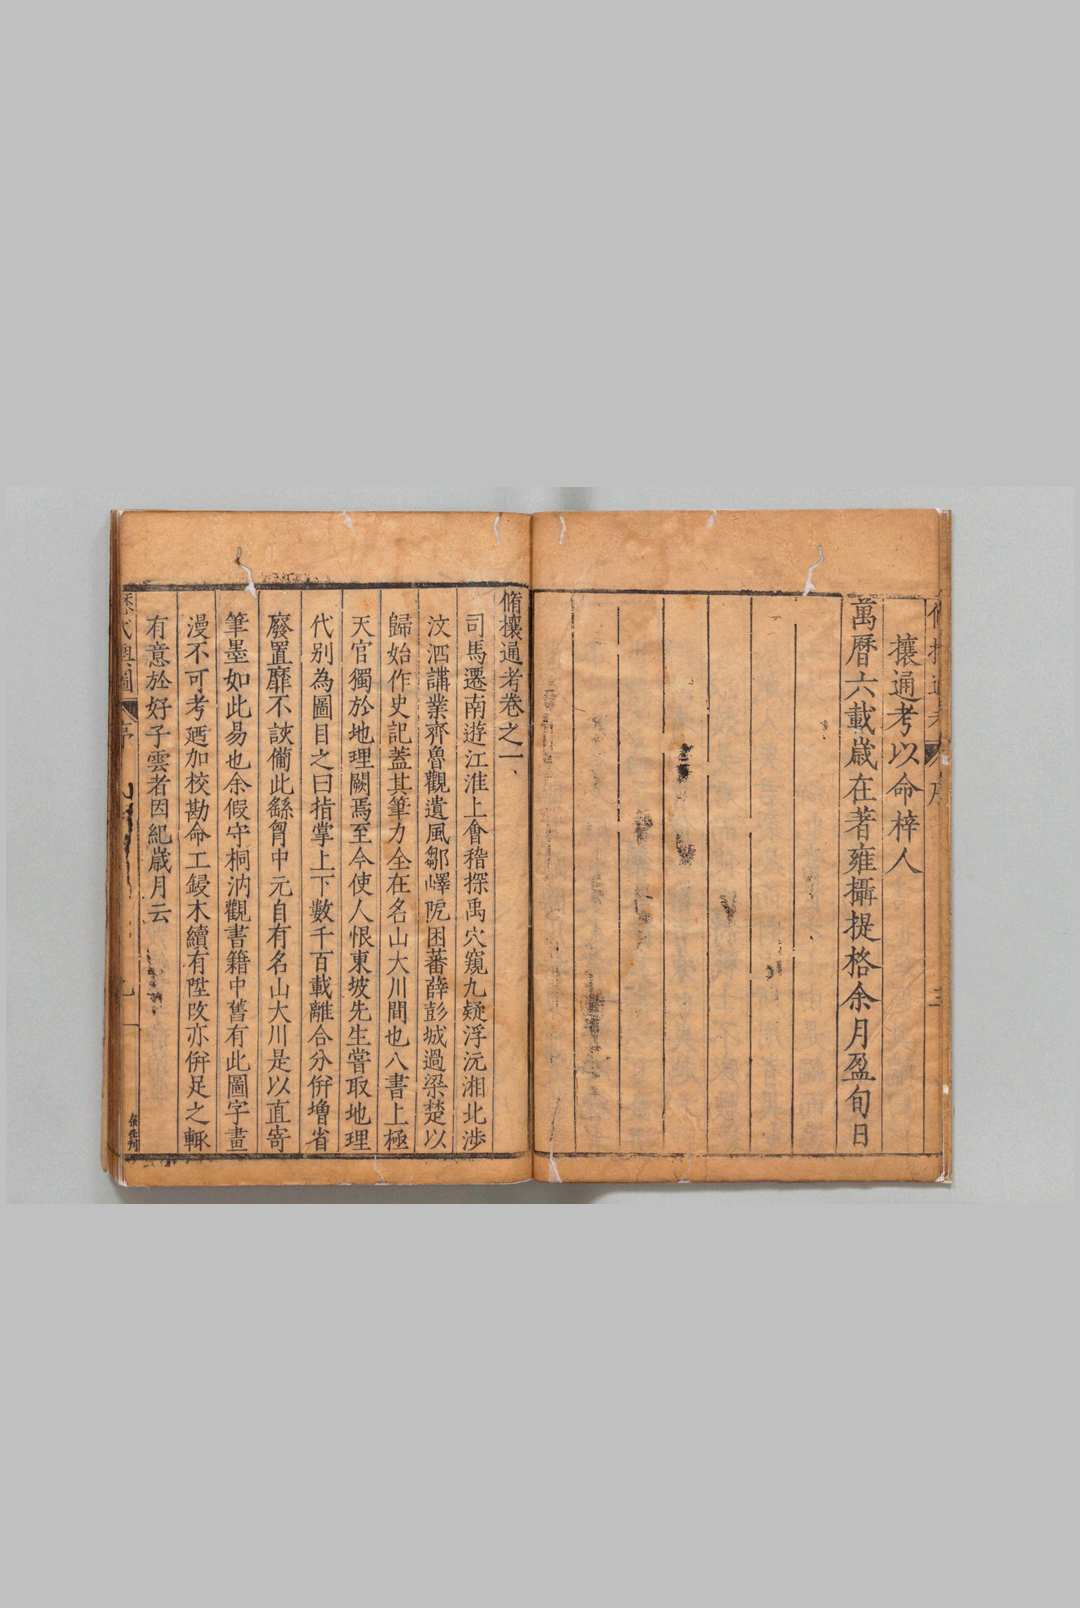 攘通考以命梓人
萬曆六載歲在著雍攝提格余月盈旬日
脩攘通考卷之一
司馬遷南遊江淮上會稽探禹穴窺九疑浮沅湘北涉
汶泗講業齊魯觀遺風鄒嶧阨困蕃薛彭城過梁楚以
歸始作史記蓋其筆力全在名山大川間也八書上極
天官獨於地理闕焉至今使人恨東坡先生嘗取地理
代别為圖目之曰指掌上下數千百載離合分倂增省
廢置靡不該僃此繇胷中元自有名山大川是以直寄
筆墨如此易也余假守桐汭觀書籍中舊有此圖字畫
漫不可考廼加校勘命工鋟木續有陞改亦倂足之輒
有意於好子雲者因紀歲月云
歷代輿圖 序